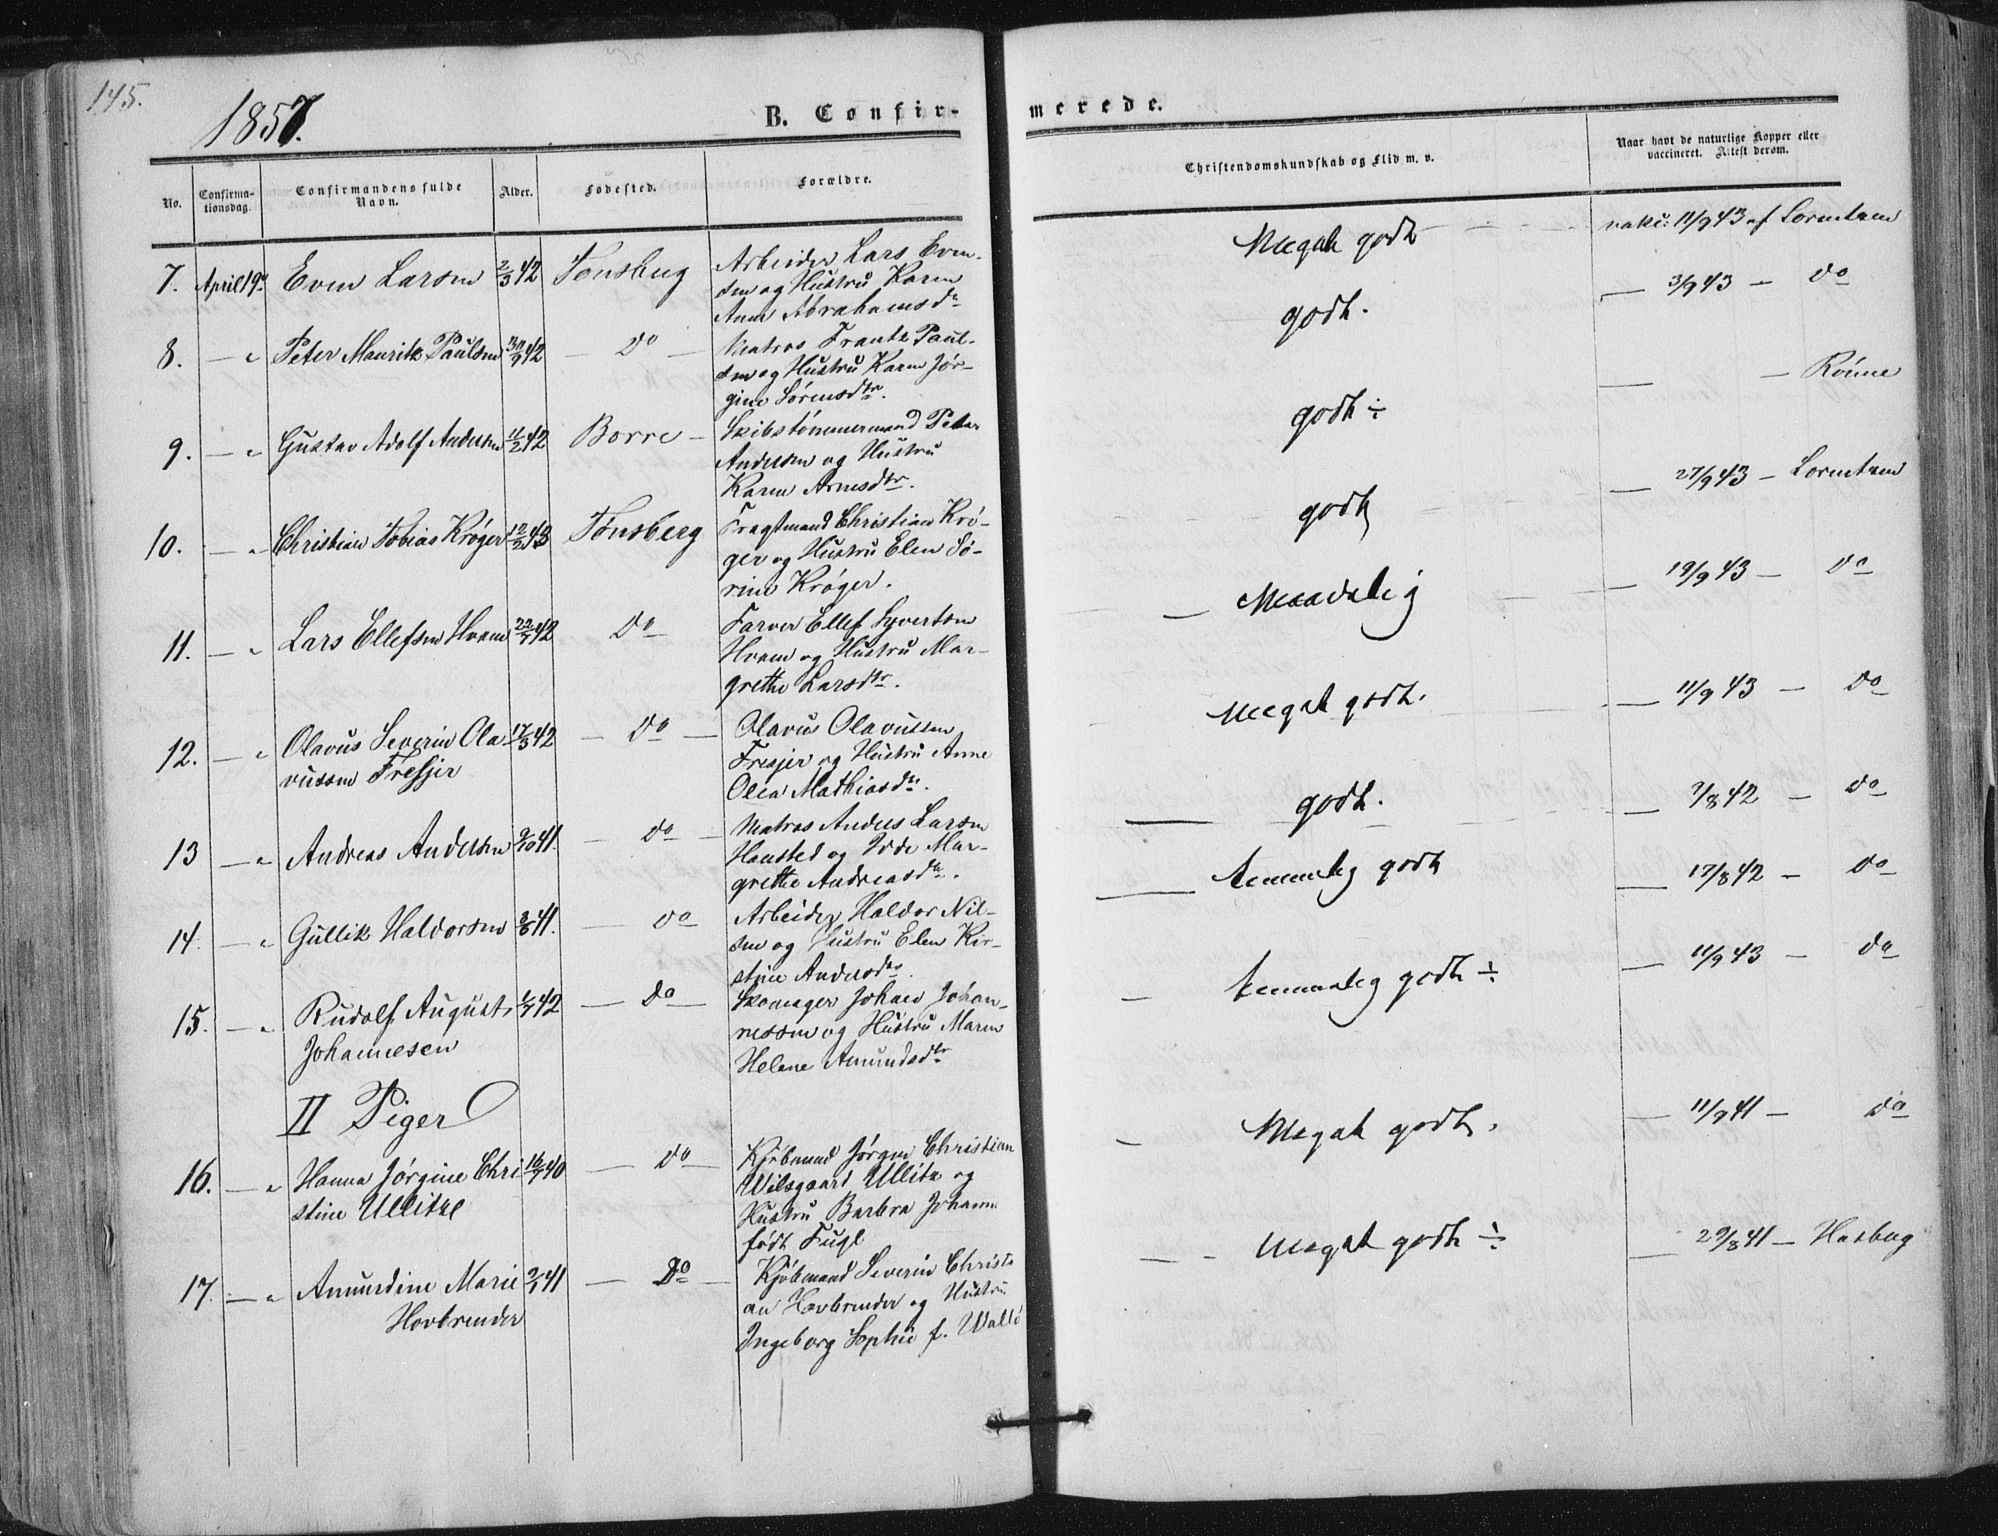 145.
1857.
B. Confir-
merede.
No.
Confirma-
tionsdag.
Confirmandens fulde
Navn.
Alder.
Fødested.
Forældre.
Christendomskundskab og Flid m. v.
Naar havt de naturlige Kopper eller
vaccineret. Attest derom.
7. April 19de Even Larsen 2/3 42 Tønsberg
Arbeider Lars Even-
sen og Hustru Karen
Anne Abrahamsdr
Meget godt
vakc: 11/9 43 af Lorentzen
8. — " Peter Mauritz Paulsen 42 — Do —
Matros Frantz Paul-
sen og Hustru Karen Jør-
gine Sørensdtr.
godt.
— 3/9 43 — Do
9. — " Gustav Adolf Andersen 11/2 42 Borre —
Skibstømmermand Peter
Andersen og Hustru
Karen Arnesdtr.
godt ÷
— — Rönne
10. — " Christian Tobias Krøger 12/2 43 Tønsberg
Fragtmand Christian Krø-
ger og Hustru Elen Sø-
rine Krøger.
godt
— 27/9 43 — Lorentzen
11. — " Lars Ellefsen Hvam 22/7 42 Do
Farver Ellef Syvertsen
Hvam og Hustru Mar-
grethe Larsdtr.
— Maadelig
— 19/9 43 — Do
12. — " Olavus Severin Ola- 17/3 42 — Do —
vussen Fresjer
Olavus Olavussen
Fresjer og Hustru Anne
Olea Mathiasdtr.
Meget godt.
— 11/9 43 — Do
13 — " Andreas Andersen 9/10 41. — Do —
Matros Anders Larsen
Hansted og Idde Mar-
grethe Andreasdtr.
godt.
— 7/8 42 — Do
14. — " Gullik Haldorsen 41. — Do
Arbeider Haldor Nil-
sen og Hustru Elen Kir-
stine Andersdtr.
— temmelig godt
— 17/8 42 — Do
15. — " Rudolf August 1/7 42 — Do —
Johannesen
Skomager Johan Johan-
nessen og Hustru Maren
Helene Amundsdtr
— temmelig godt ÷
— 11/9 43 — Do
II Piger
16. — " Hanna Jørgine Chri 16/7 40 — Do —
stine Ullitze
Kjøbmand Jørgen Christian
Wilsgaard Ullitz og
Hustru Barbra Johanne
født Fugl
— Meget godt.
— 11/9 41 — Do
17. — " Amundine Marie 2/1 41 — Do —
Hovbrender
Kjøbmand Severin Christi
an Hovbrender og Hustru
Ingeborg Sophie f. Wallø
— Meget godt ÷
— 29/8 41 — Hasberg